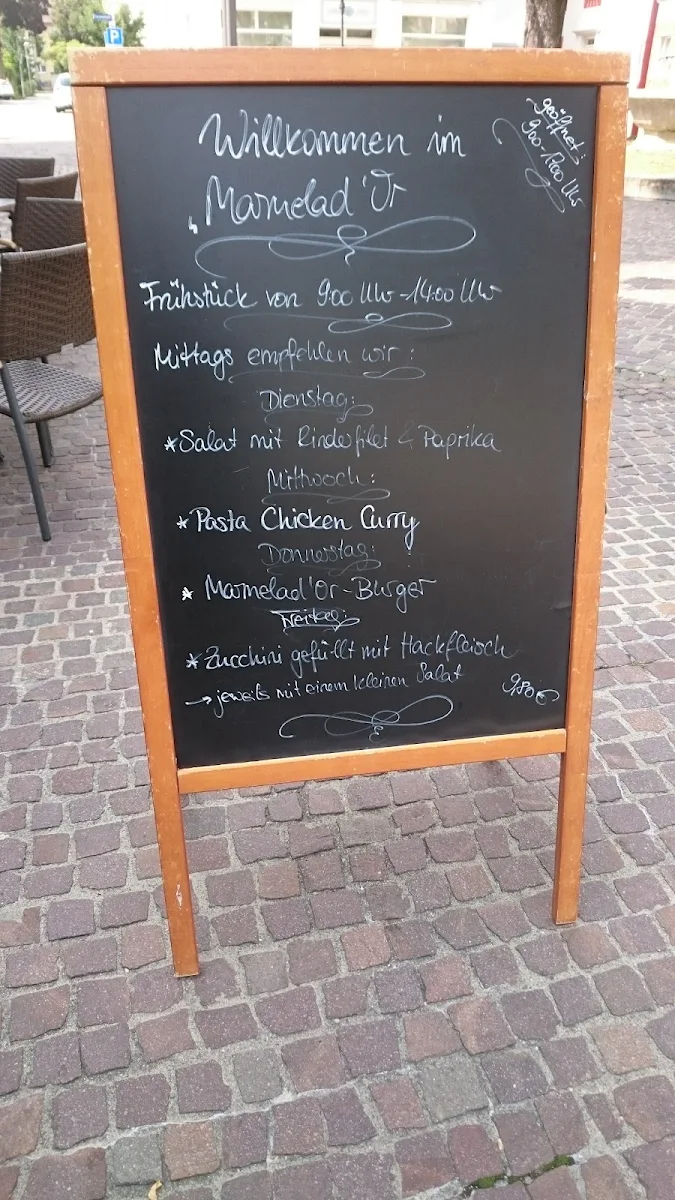 Willkommen im
„Marmelad'Or
geöffnet:
9:00-17:00 Uhr
Frühstück von 9:00 Uhr-14:00 Uhr
Mittags empfehlen wir:
Dienstag:
*Salat mit Rinderfilet & Paprika
Mittwoch:
*Pasta Chicken Curry
Donnerstag:
* Marmelad'Or-Burger
Freitag:
*Zucchini gefüllt mit Hackfleisch
→ jeweils mit einem kleinen Salat
9,80€
P